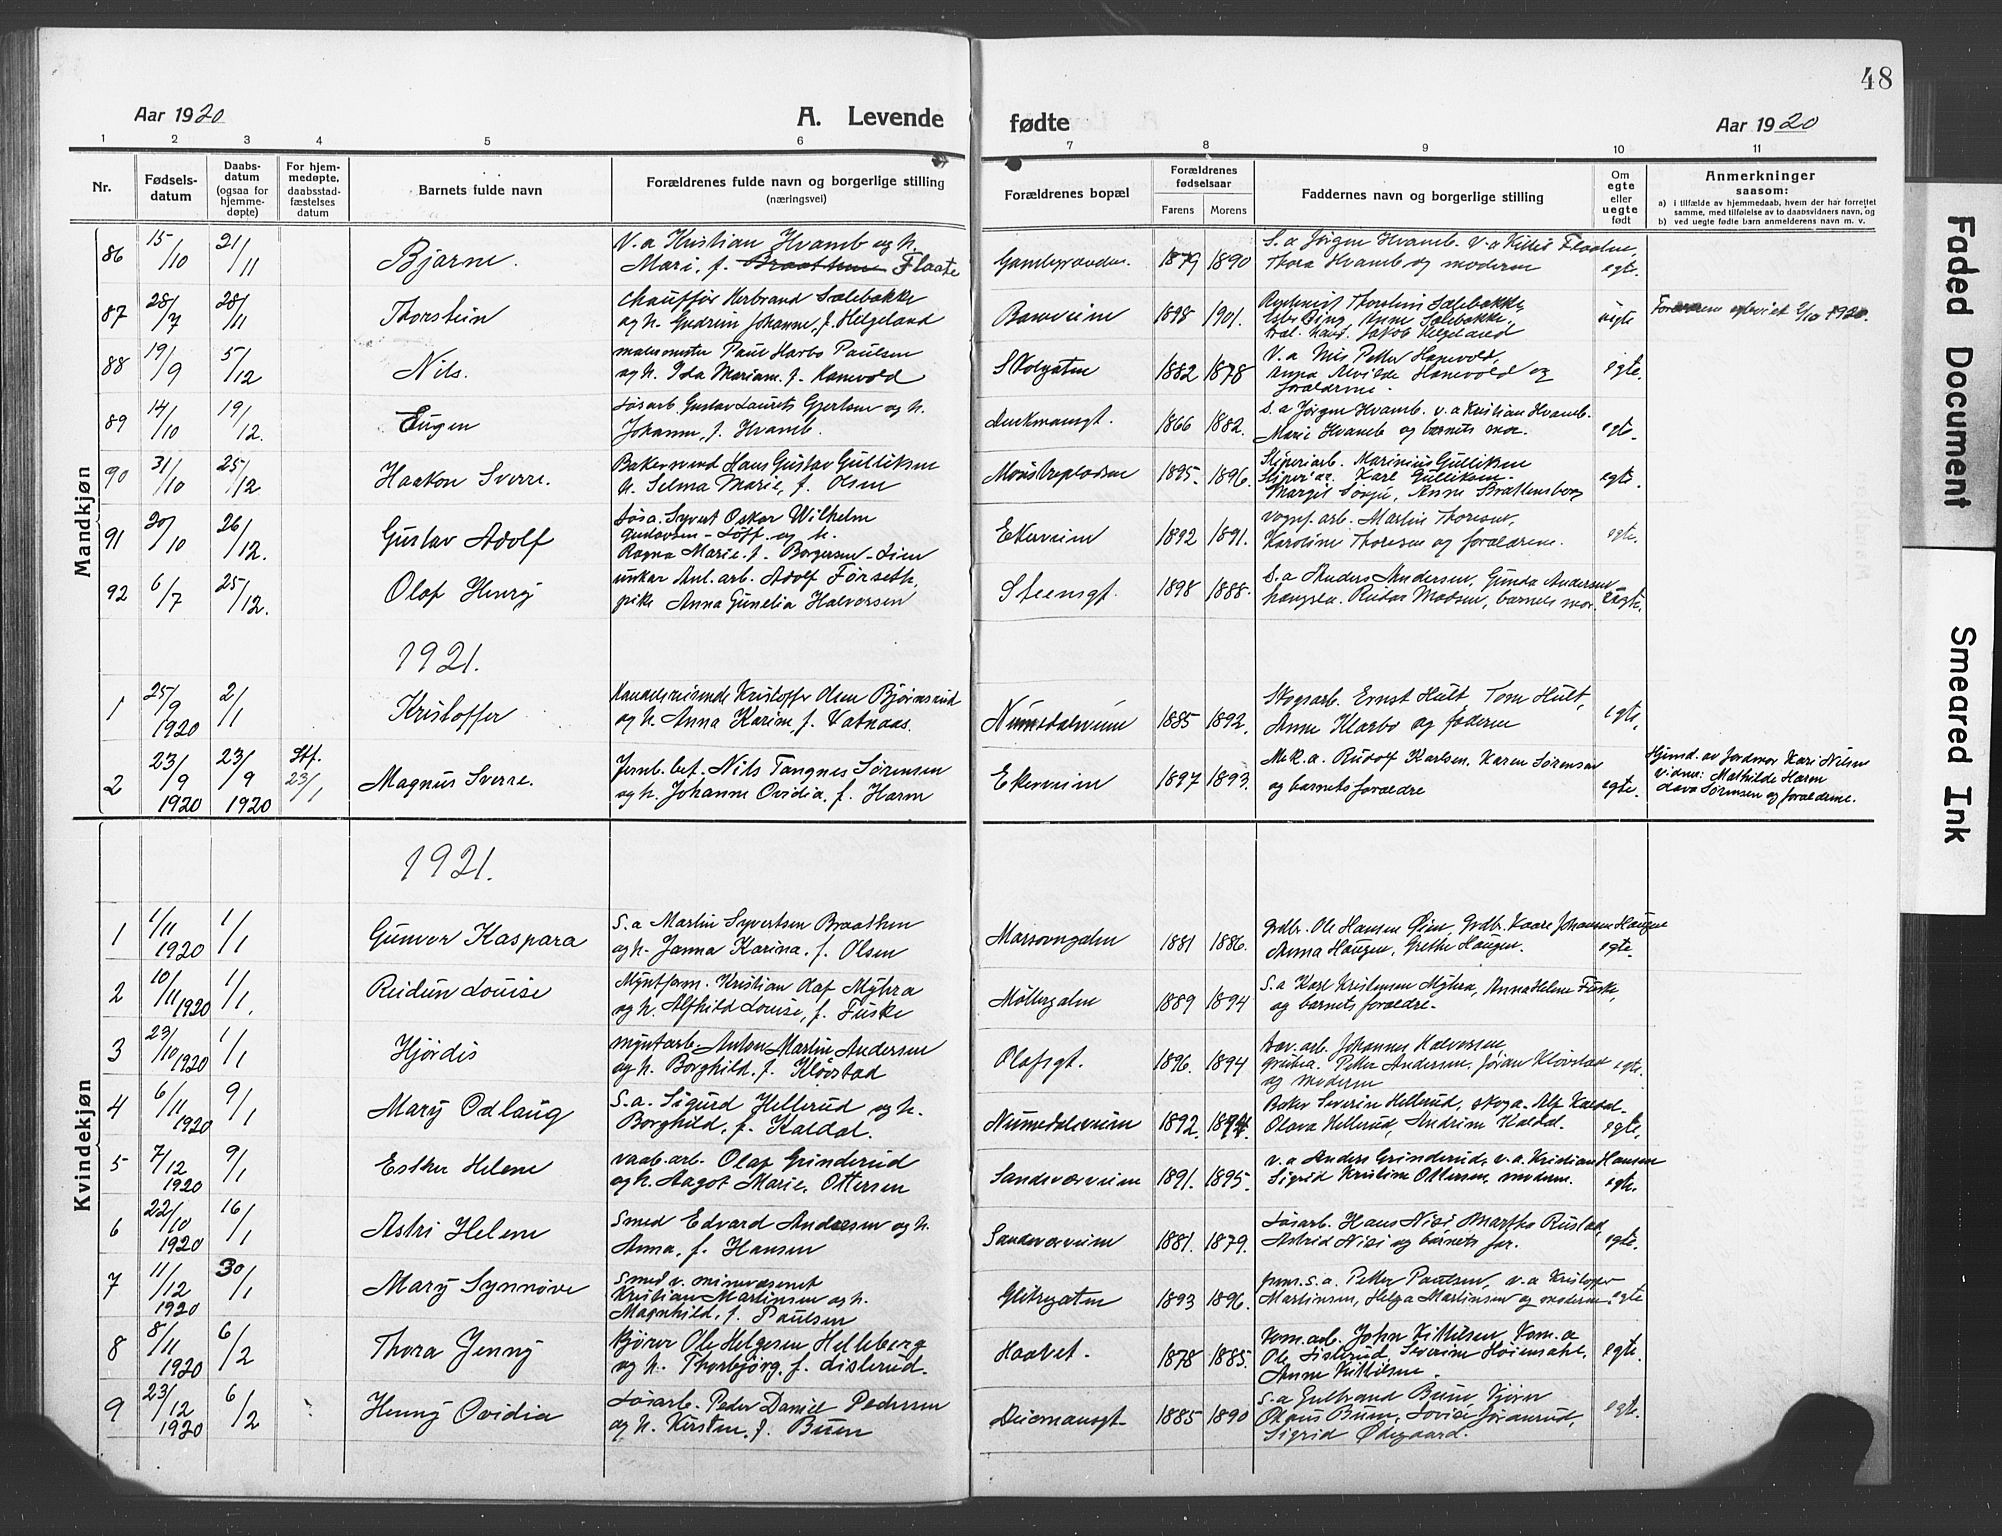 48
Aar 1920
A. Levende
fødte
Aar 1920
1 2 3 4 5 6 7 8 9 10 11
Nr.
Fødsels-
datum
Daabs-
datum
(ogsaa for
hjemme-
døpte)
For hjem-
medøpte,
daabsstad-
fæstelses
datum
Barnets fulde navn
Forældrenes fulde navn og borgerlige stilling
(næringsvei)
Forældrenes bopæl
Forældrenes
fødselsaar
Farens Morens
Faddernes navn og borgerlige stilling
Om
egte
eller
uegte
født
Anmerkninger
saasom:
a) i tilfælde av hjemmedaab, hvem der har forrettet
samme, med tilføielse av to daabsvidners navn, og
b) ved uegte fødte barn anmelderens navn m. v.
Mandkjøn
86 15/10 21/11 Bjarne. V. a Kristian Hvamb og h.
Mari, f. Braathen Flaate 1879 1890 S. a Jørgen Hvamb. v. a
Thora Hvamb og moderen egte.
87 28/7 28/11 Thorstein Chauffør Herbrand Sælebakke
og h. Gudrun Johanne, f. Helgeland 1898 1901.
Jakob Helgeland
88 19/9 5/12 Nils. Paul Harbo Paulsen
og h. Ida Mariam. f. Hanevold Skolegaten 1882 1878 V. a Nils Petter Hanevold,
Anna Alvilde Hanevold og
forældrene. egte.
89 14/10 19/12. Eugen Løsarb. Gustav Laurits Gjertsen og h.
Johanne, f. Hvamb. 1866 1882. S. a Jørgen Hvamb. v. a Kristian Hvamb.
Marie Hvamb og barnets mor. egte.
90 31/10 25/12 Haakon Sverre. Bakersvend Hans Gustav Gulliksen
h. Selma Marie, f. Olsen 1895. 1896. Sliperiarb. Marinius Gulliksen
Karl Gulliksen.
Margit Anne egte.
91 20/10 26/12. Gustav Adolf Løsa. Syvert Oskar Wilhelm
Gustavsen - Løff. og h.
Ragna Marie. f. Borgersen - Lien Ekerveien 1892 1891. Vognf. arb. Martin Thoresen,
Karoline Thoresen og forældrene. egte.
92 6/7 25/12. Olaf Henry unkar Anl. arb. Adolf Førseth,
pike Anna Gunelia Halvorsen Steensgt. 1898 1888. S. a Anders Andersen, Gunda Andersen
Madsen, barnets mor. uegte.
1921.
1 25/9 1920 2/1 Kristoffer Handelsreisende Kristoffer Olsen Bjørnsrud
og h. Anna Karine, f. Vatnaas. Numedalsveien 1885 1892. Skogsarb. Ernst Hult, Tom Hult,
Anne Klarbo og faderen egte.
2 23/9 1920 23/9 1920 Stf. 23/1 Magnus Sverre. Jernb. bet. Nils Tangnes Sørensen
og h. Johanne Ovidia, f. Harm Ekerveien 1897 1893. Mek. a. Rudolf Karlsen. Karen Sørensen
og barnets forældre egte. Hjemd. av Jordmor Kari Nilsen
vidner: Mathilde Harm
Sørensen og forældrene.
Kvindekjøn
1921.
1 1/11 1920 1/1 Gunvor Kaspara S. a Martin Syvertsen Braathen
og h. Janna Karina. f. Olsen 1881 1886. Grdbr. Ole Hansen Øien, Grdbr. Kaare Johansen Haugen
Anna Haugen, Grethe Haugen. egte.
2 10/11 1920 1/1. Reidun Louise Myntform. Kristian Olaf Myhra
og h. Alfhild Louise, f. Fuske Møllergaten 1889 1894 S. a Karl Kristensen Myhra, Anna Helene Fuske,
og barnets forældre.
3 23/10 1920 1/1 Hjørdis Myntarb. Anton Martin Andersen
og h. Borghild. f. Kløvstad Olafsgt. 1896. 1894 arb. Johannes Halvorsen,
gruba. Petter Andersen. Jøran Kløvstad
og moderen egte.
4 6/11 1920 9/1 Mary Odlaug S. a. Sigurd Hellerud og h.
Borghild, f. Kaldal. Numedalsveien 1892. 1894. Baker Severin Hellerud, skog a. Alf Kaldal.
Olava Hellerud, Andrine Kaldal. egte.
5 7/12 1920 9/1 Esther Helene vaab. arb. Olaf Grinderud
og h. Aagot Marie. Ottersen Sandsværveien 1891. 1895. v. a Anders Grinderud, v. a. Kristian Hansen
Sigrid Kristine Ottersen, moderen. egte.
6 22/10 1920 16/1 Astri Helene Smed Edvard Andersen og h.
Anna, f. Hansen Sandsværveien 1881. 1879. Løsarb. Hans Nisi Martha Rustad
Astrid Nisi og barnets far. egte.
7 11/12 1920 30/1 Mary Synnøve Smed v. minevæsenet
Kristian Martinsen og h.
Magnhild, f. Paulsen Glitregaten 1893 1896. S. a. Petter Paulsen, v. a Kristoffer
Martinsen, Helga Martinsen og moderen egte
8 8/11 1920 6/2 Thora Jenny Kjører Ole Helgesen Helleberg
og h. Thorbjørg. f. Listerud. Haavet. 1878 1885. Kom. arb. John Kittilsen, Kom. a
Ole Listerud, Severine
Anne Kittilsen. egte.
9 23/12 1920 6/2 Henny Ovidia Løsarb. Peder Daniel Pedersen
og h. Kirsten. f. Buen 1885 1890 S. a Gulbrand Buen, Kjører
Olaus Buen, Lovise Jøransrud,
Sigrid Ødegaard. egte.
Faded Document
Smeared Ink